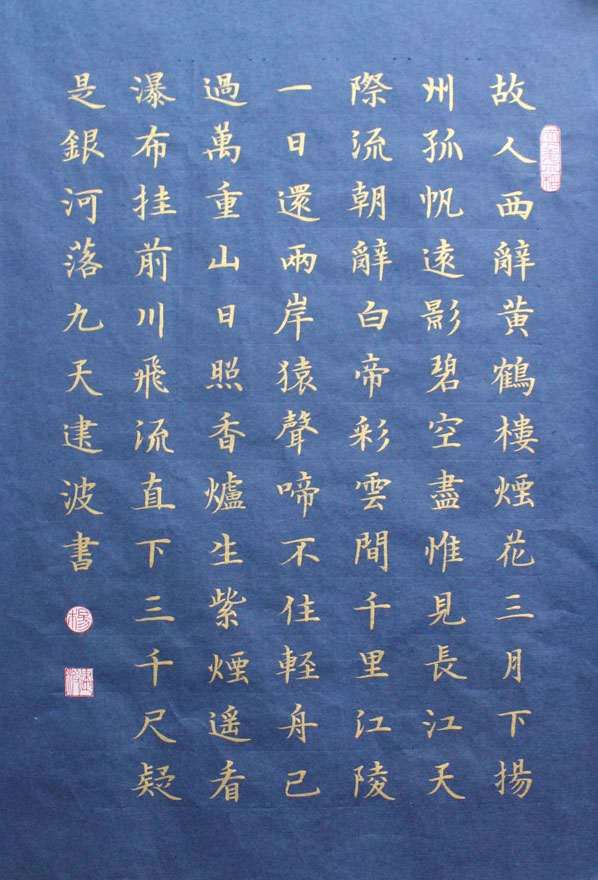 故人西辭黄鶴樓煙花三月下揚
州孤帆遠影碧空盡惟見長江天
際流朝辭白帝彩雲間千里江陵
一日還兩岸猿聲啼不住軽舟已
過萬重山日照香爐生紫煙遥看
瀑布挂前川飛流直下三千尺疑
是銀河落九天建波書